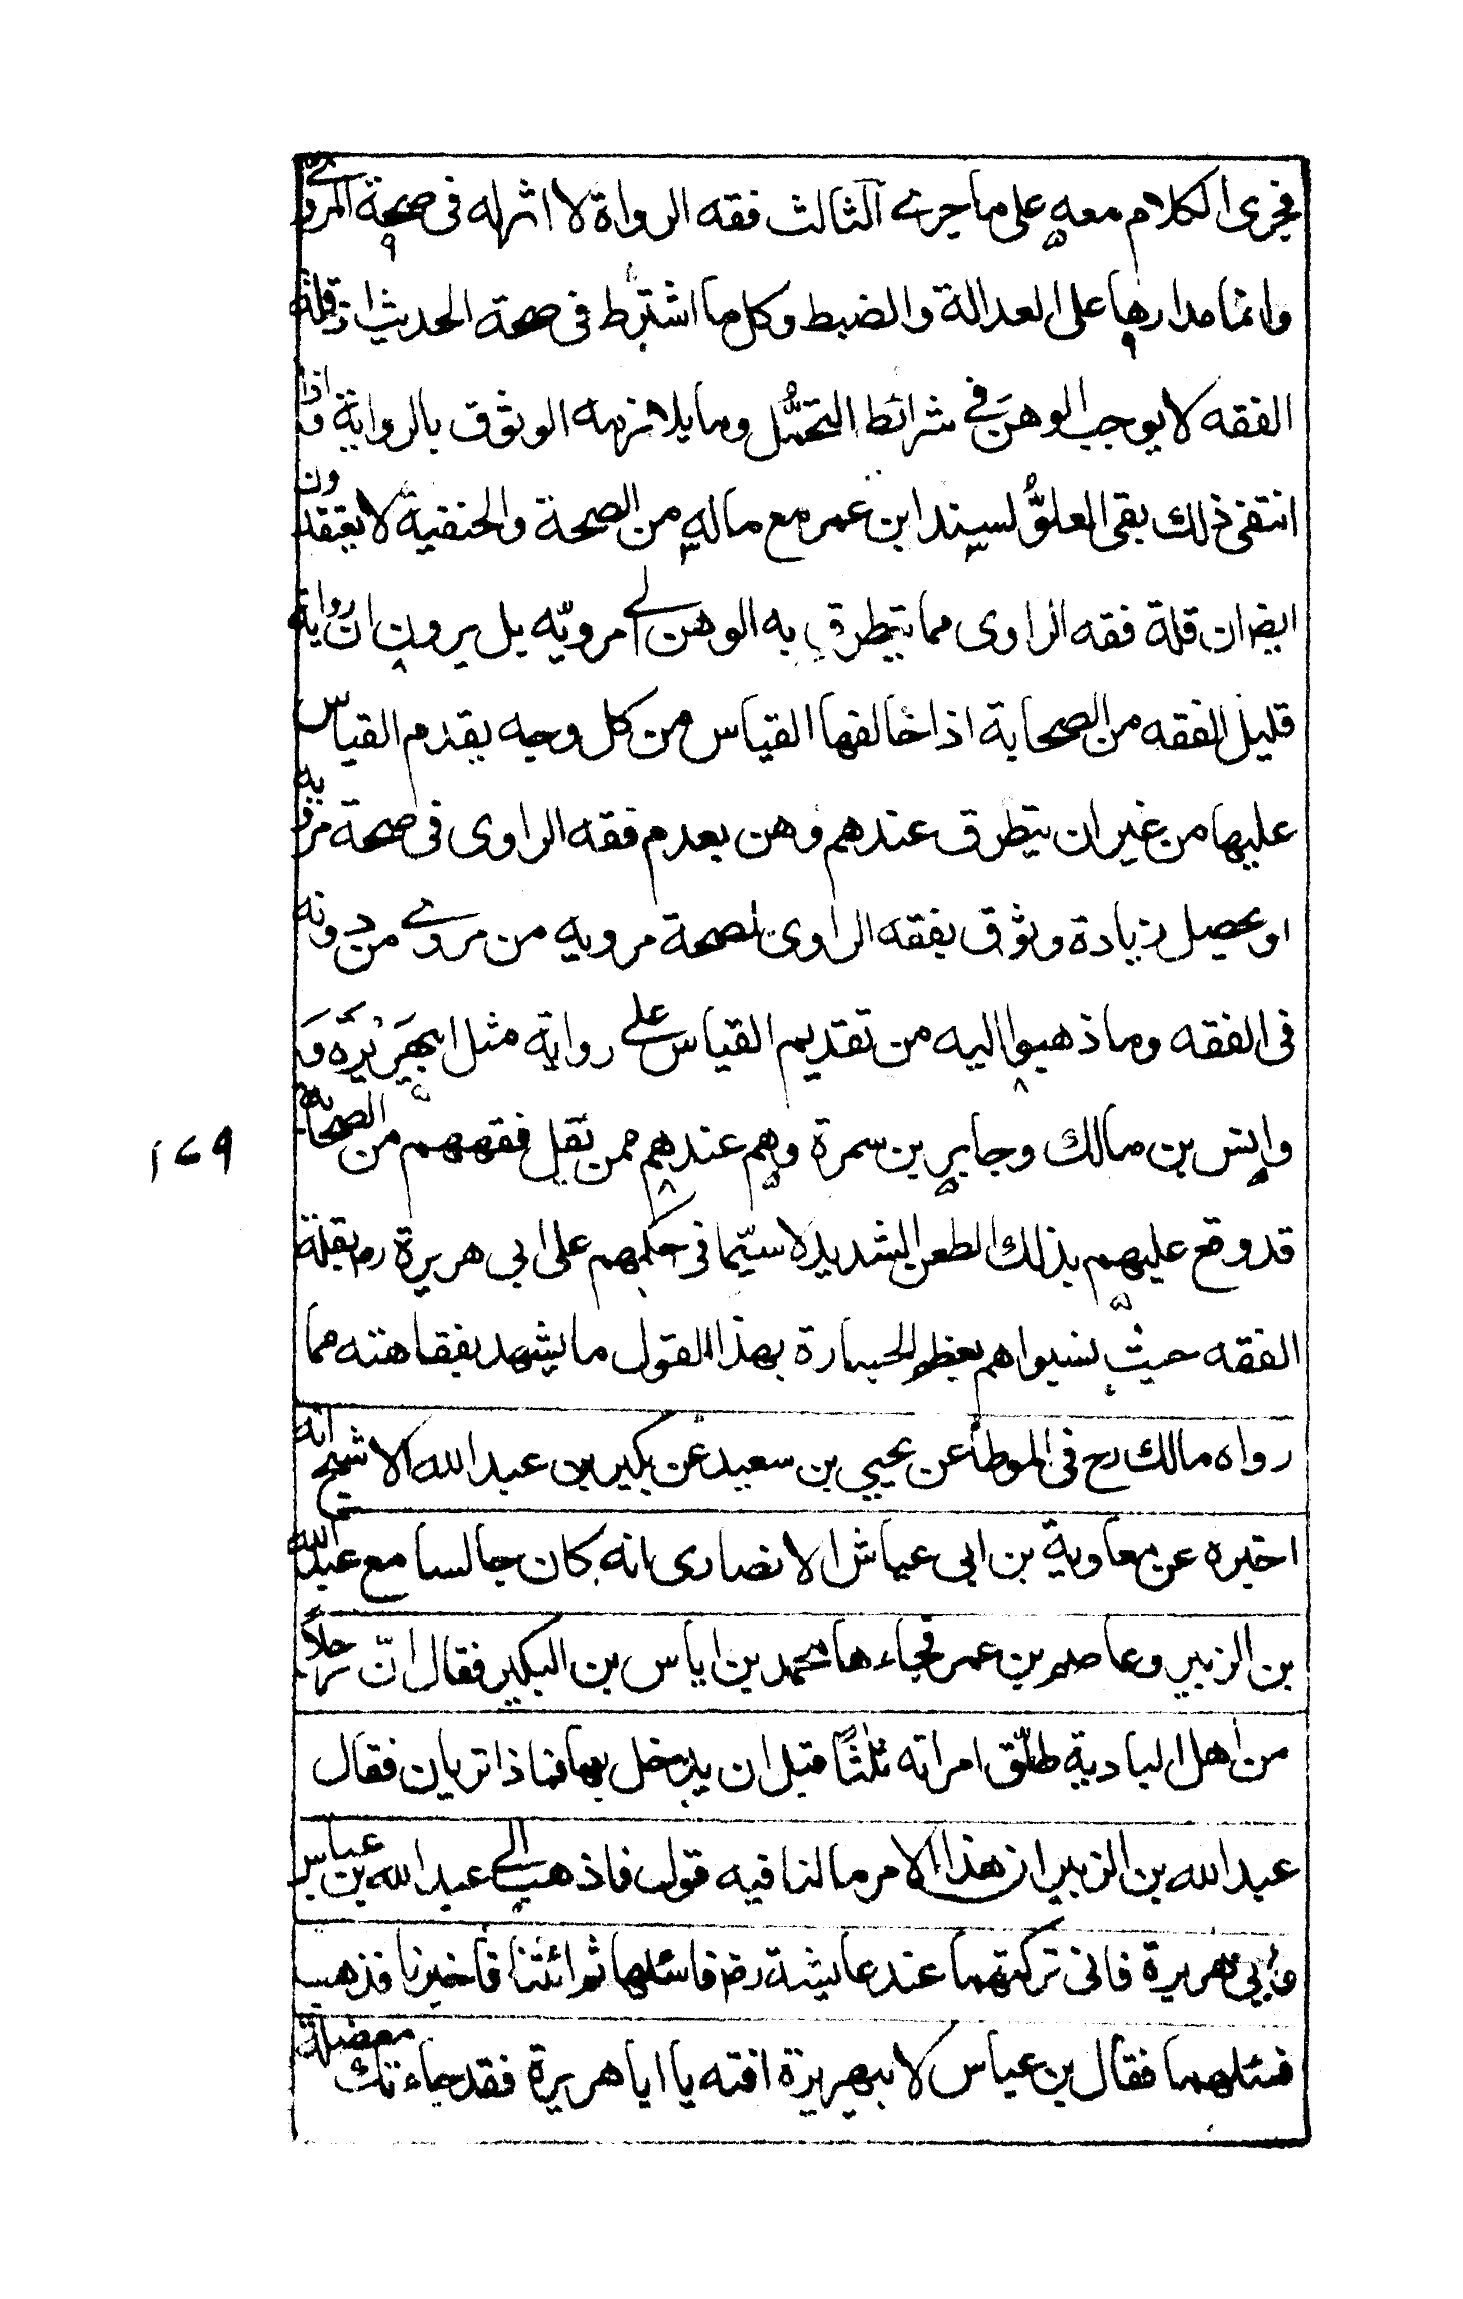 فجرى الكلام معه على ما جرى الثالث فقه الرواة لا اثر له فى صحة المروى
وانما مدارها على العدالة والضبط وكل ما اشترط فى صحة الحديث اذ قلة
الفقه لا يوجب الوهن فى شرائط التحمل وما يلازمه الوثوق بالرواية واذا
انتفى ذلك بقى العلو لسند ابن عمر مع ماله من الصحة والحنفية لا يعتقدون
ايضا ان قلة فقه الراوى مما يتطرق به الوهن الى مرويّه بل يرون ان رواية
قليل الفقه من الصحابة اذا خالفها القياس من كل وجه يقدم القياس
عليها من غير ان يتطرق عندهم وهن بعدم فقه الراوى فى صحة مرويه
او يحصل زيادة وثوق بفقه الراوى لصحة مرويه من مروى من دونه
فى الفقه وما ذهبوا اليه من تقديم القياس على رواية مثل ابيهَرَيْرَة وَ
وانس بن مالك وجابر بن سمرة وهم عندهم ممن نقل فقههم من الصحابة
١٦٩
قد وقع عليهم بذلك الطعن الشديد لا سيّما فى حكمهم على ابي هريرة رض بقلة
الفقه حيث نسبوا هم بعظم الجسارة بهذا القول ما يشهد بفقاهته مما
رواه مالك رح فى الموطأ عن يحيى بن سعيد عن بكير بن عبد الله الاشج انه
اخبره عن معاوية بن ابى عياش الانصارى انه كان جالسا مع عبد الله
بن الزبير وعاصم بن عمر فجاءها محمد بن اياس بن البكير فقال انّ رجلاً
من اهل البادية طلّق امراته ثلثاً قبل ان يدخل بها فما ذا تريان فقال
عبد الله بن الزبير ان هذا الامر ما لنا فيه قول فاذهب الى عبد الله بن عباس
وابي هريرة فانى تركتهما عند عايشة رض فاسئلهما ثم ائتنا فاخبرنا فذهب
فسئلهما فقال بن عباس لابيهريرة افته يا ابا هريرة فقد جاءتك معضلة